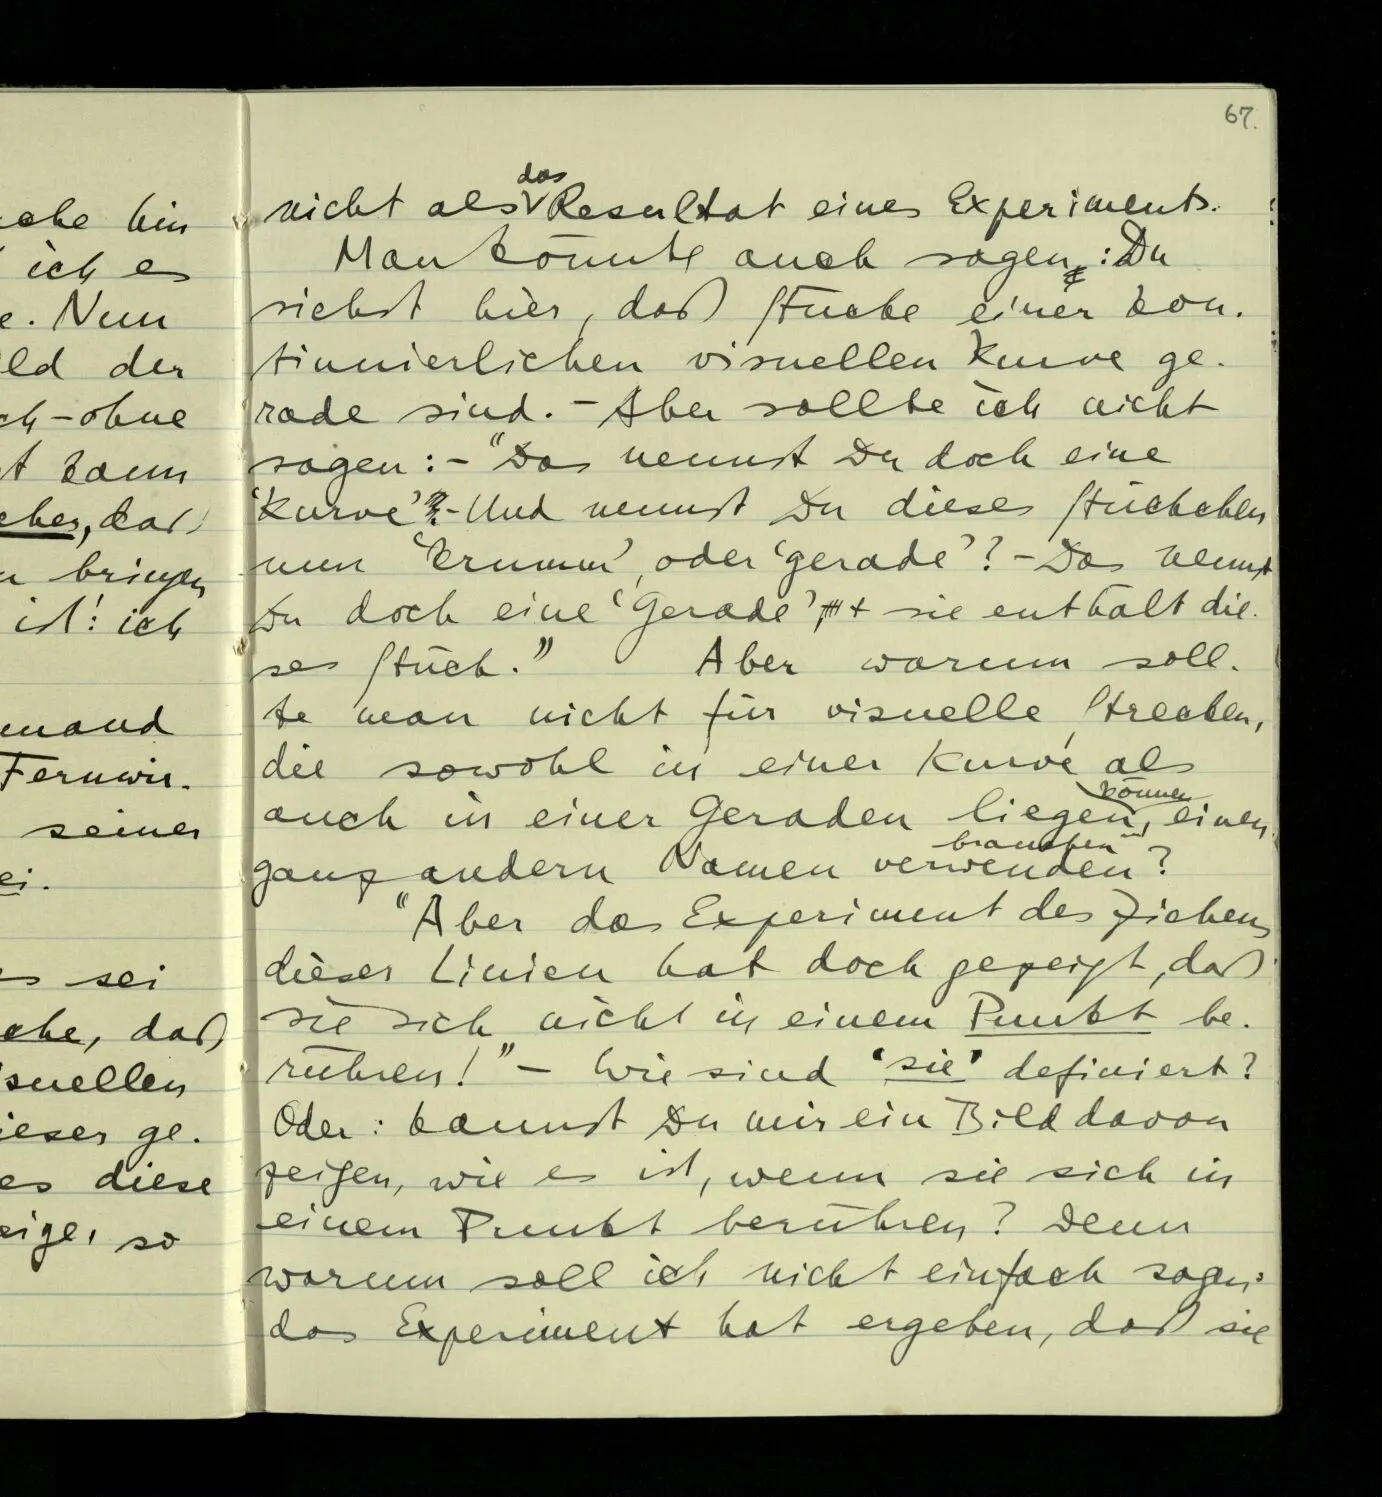 67.
nicht als das Resultat eines Experiments.
Man könnte auch sagen: Du
siehst hier, daß Stücke einer kon-
tinuierlichen visuellen Kurve ge-
rade sind. – Aber sollte ich nicht
sagen: – "Das nennst Du doch eine
'Kurve'? – Und nennst Du dieses Stückchen
nun 'krumm', oder 'gerade'? – Das nennst
Du doch eine 'Gerade', + sie enthält die-
ses Stück." Aber warum soll-
te man nicht für visuelle Strecken,
die sowohl in einer Kurve als
auch in einer Geraden liegen können, einen
ganz andern Namen verwenden brauchen?
"Aber das Experiment des Ziehens
dieser Linien hat doch gezeigt, daß
sie sich nicht in einem Punkt be-
rühren!" – Wie sind 'sie' definiert?
Oder: kannst Du mir ein Bild davon
zeigen, wie es ist, wenn sie sich in
einem Punkt berühren? Denn
warum soll ich nicht einfach sagen:
das Experiment hat ergeben, daß sie
ache hin
ich es
e. Nun
ld der
ch – ohne
t kann
cher, daß
n bringen
ist! ich
mand
Fernwir-
seiner
ei.
s sei
ache, daß
isuellen
ieser ge-
es diese
eige, so